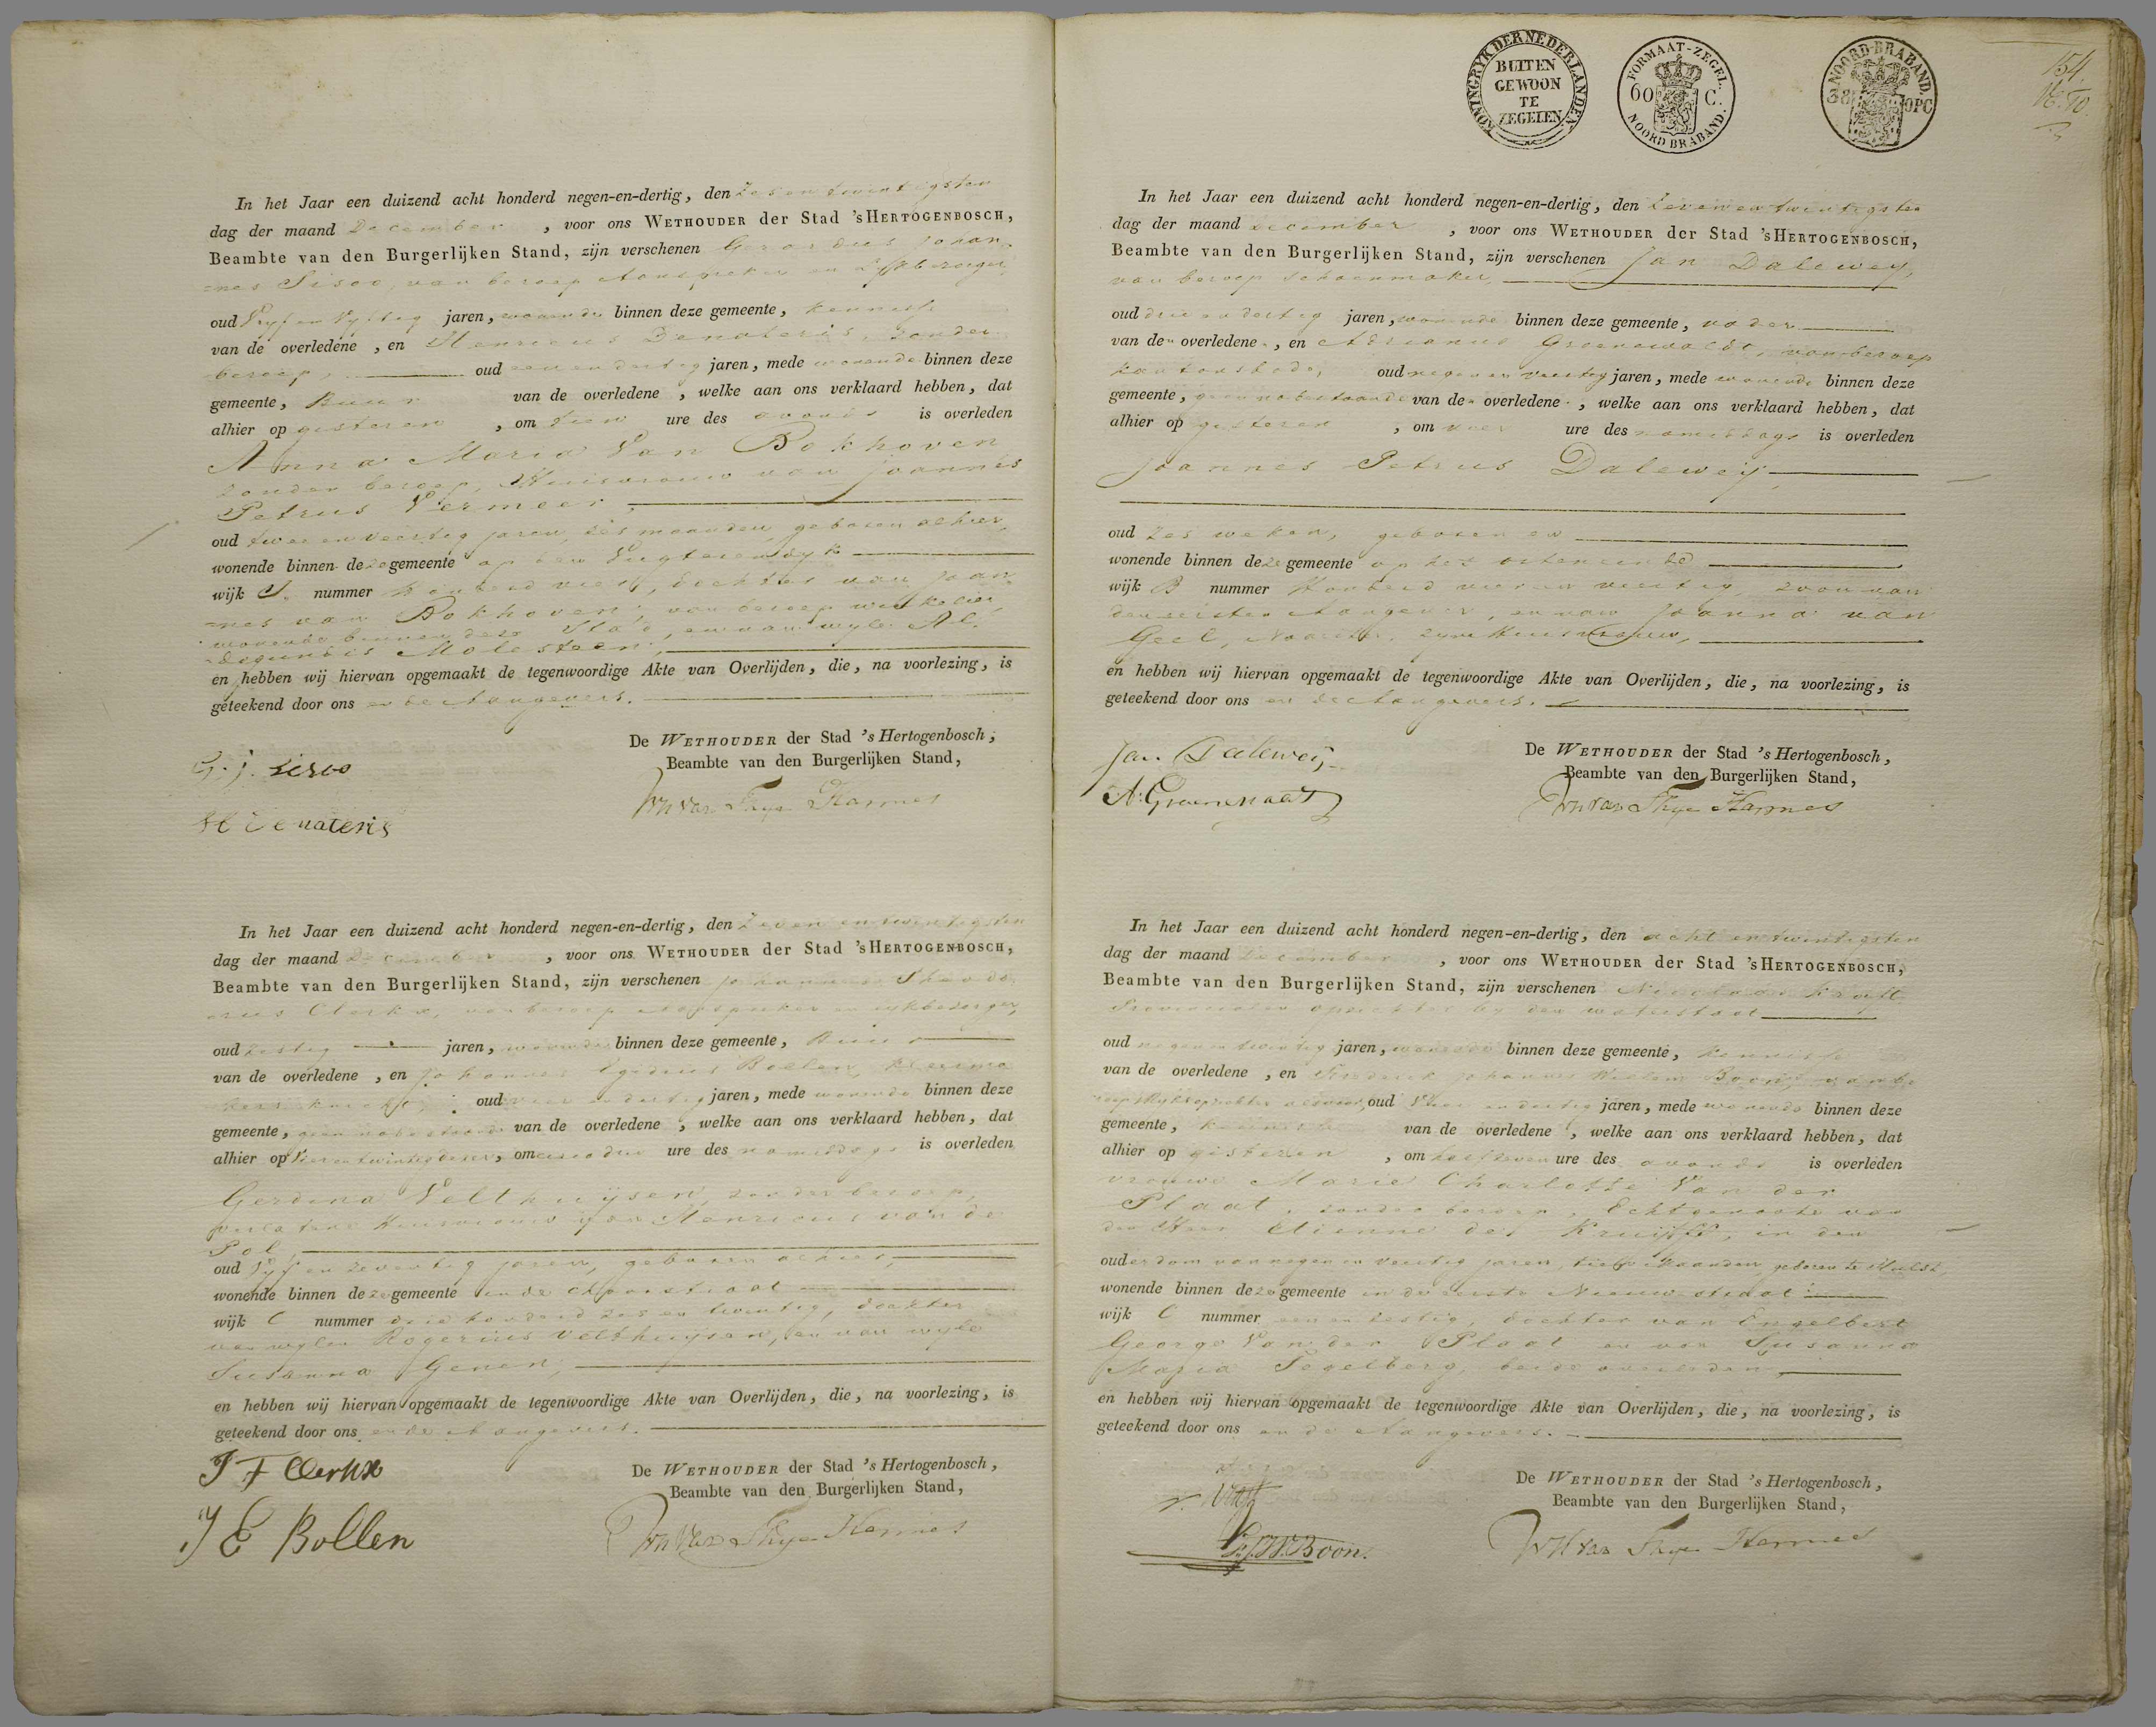 In het Jaar een duizend acht honderd negen-en-dertig, den Zesentwintigsten
dag der maand December, voor ons WETHOUDER der Stad 'sHERTOGENBOSCH,
Beambte van den Burgerlijken Stand, zijn verschenen Gerardus Johan-
=nes Sisoo, van beroep Aanspreker en Lijkbezorger
oud Vyf en Vyftig jaren, wonende binnen deze gemeente, kennisse
van de overledene, en Henricus Denateris, zonder
beroep, oud een en dertig jaren, mede wonende binnen deze
gemeente, Buur van de overledene, welke aan ons verklaard hebben, dat
alhier op gisteren, om tien ure des avonds is overleden
Anna Maria Van Bokhoven
zonder beroep, Huisvrouw van Joannes
Petrus Vermeer,
oud twee en veertig jaren, zes maanden, geboren alhier,
wonende binnen deze gemeente op den Vugterendyk
wijk S. nummer Honderd vier, dochter van Joan-
=nes van Bokhoven, van beroep winkelier,
wonende binnen deze Stad, en van wyle Al-
=degundis Molesteen,
en hebben wij hiervan opgemaakt de tegenwoordige Akte van Overlijden, die, na voorlezing, is
geteekend door ons en de Aangevers.
De WETHOUDER der Stad 's Hertogenbosch,
Beambte van den Burgerlijken Stand,
G. J. Sisoo
H Denateris
In het Jaar een duizend acht honderd negen-en-dertig, den Zeven en twintigsten
dag der maand December, voor ons WETHOUDER der Stad 'sHERTOGENBOSCH,
Beambte van den Burgerlijken Stand, zijn verschenen Johannes Theodo-
orus Clerkx, van beroep Aanspreker en Lykbezorger,
oud Zestig jaren, wonende binnen deze gemeente, Buur
van de overledene, en Johannes Egidius Bollen,
oud vier en dertig jaren, mede wonende binnen deze
gemeente, geen nabestaande van de overledene, welke aan ons verklaard hebben, dat
alhier op Vier en twintig dezer, om drie ure des namiddags is overleden
Gerdina Velthuijsen, zonder beroep,
Huisvrouw van Henricus van de
Pol,
oud Vyf en zeventig jaren, geboren alhier,
wonende binnen deze gemeente in de
wijk C nummer drie honderd zes en twintig, dochter
van wylen Rogerius Velthuijsen, en van wyle
Susanna Genen,
en hebben wij hiervan opgemaakt de tegenwoordige Akte van Overlijden, die, na voorlezing, is
geteekend door ons en de Aangevers.
De WETHOUDER der Stad 's Hertogenbosch,
Beambte van den Burgerlijken Stand,
J T Clerkx
J E Bollen
KONINGRYK DER NEDERLANDEN
BUITEN
GEWOON
TE
ZEGELEN
FORMAAT-ZEGEL.
60 C.
NOORD BRABAND.
NOORD-BRABAND.
38 OPC
154.
In het Jaar een duizend acht honderd negen-en-dertig, den Zevenentwintigsten
dag der maand December, voor ons WETHOUDER der Stad 'sHERTOGENBOSCH,
Beambte van den Burgerlijken Stand, zijn verschenen Jan Dalewey,
van beroep Schoenmaker,
oud drie en dertig jaren, wonende binnen deze gemeente, vader
van den overledene, en Adrianus Groenewaldt, van beroep
kantonsbode, oud negen en veertig jaren, mede wonende binnen deze
gemeente, geen nabestaande van den overledene, welke aan ons verklaard hebben, dat
alhier op gisteren, om vier ure des namiddags is overleden
Joannes Petrus Dalewey,
oud zes weken, geboren en
wonende binnen deze gemeente op het ortheneinde
wijk B nummer Honderd vier en veertig, zoon van
den eersten Aangever, en van Joanna van
Geel, Naaister, zyne Huisvrouw,
en hebben wij hiervan opgemaakt de tegenwoordige Akte van Overlijden, die, na voorlezing, is
geteekend door ons en de Aangevers.
De WETHOUDER der Stad 's Hertogenbosch,
Beambte van den Burgerlijken Stand,
Jan Dalewey
In het Jaar een duizend acht honderd negen-en-dertig, den acht en twintigsten
dag der maand December, voor ons WETHOUDER der Stad 'sHERTOGENBOSCH,
Beambte van den Burgerlijken Stand, zijn verschenen Nicolaas Kraft
Provincialen opzichter by den waterstaat
oud negen en twintig jaren, wonende binnen deze gemeente, kennisse
van de overledene, en Frederik Johannes Willem Boon, van be-
oud Vier en dertig jaren, mede wonende binnen deze
gemeente, kennisse van de overledene, welke aan ons verklaard hebben, dat
alhier op gisteren, om half zeven ure des avonds is overleden
vrouwe Marie Charlotte Van der
Plaat, zonder beroep, Echtgenoote van
den Heer Etienne de Kruijff, in den
ouderdom van negen en veertig jaren, maanden, geboren te Hulst,
wonende binnen deze gemeente in de eerste Nieuwstraat
wijk C nummer een en zestig, dochter van Engelbert
George Van der Plaat en van Susanna
Maria Tegelberg, beide overleden,
en hebben wij hiervan opgemaakt de tegenwoordige Akte van Overlijden, die, na voorlezing, is
geteekend door ons en de Aangevers.
De WETHOUDER der Stad 's Hertogenbosch,
Beambte van den Burgerlijken Stand,
F.J.W. Boon.